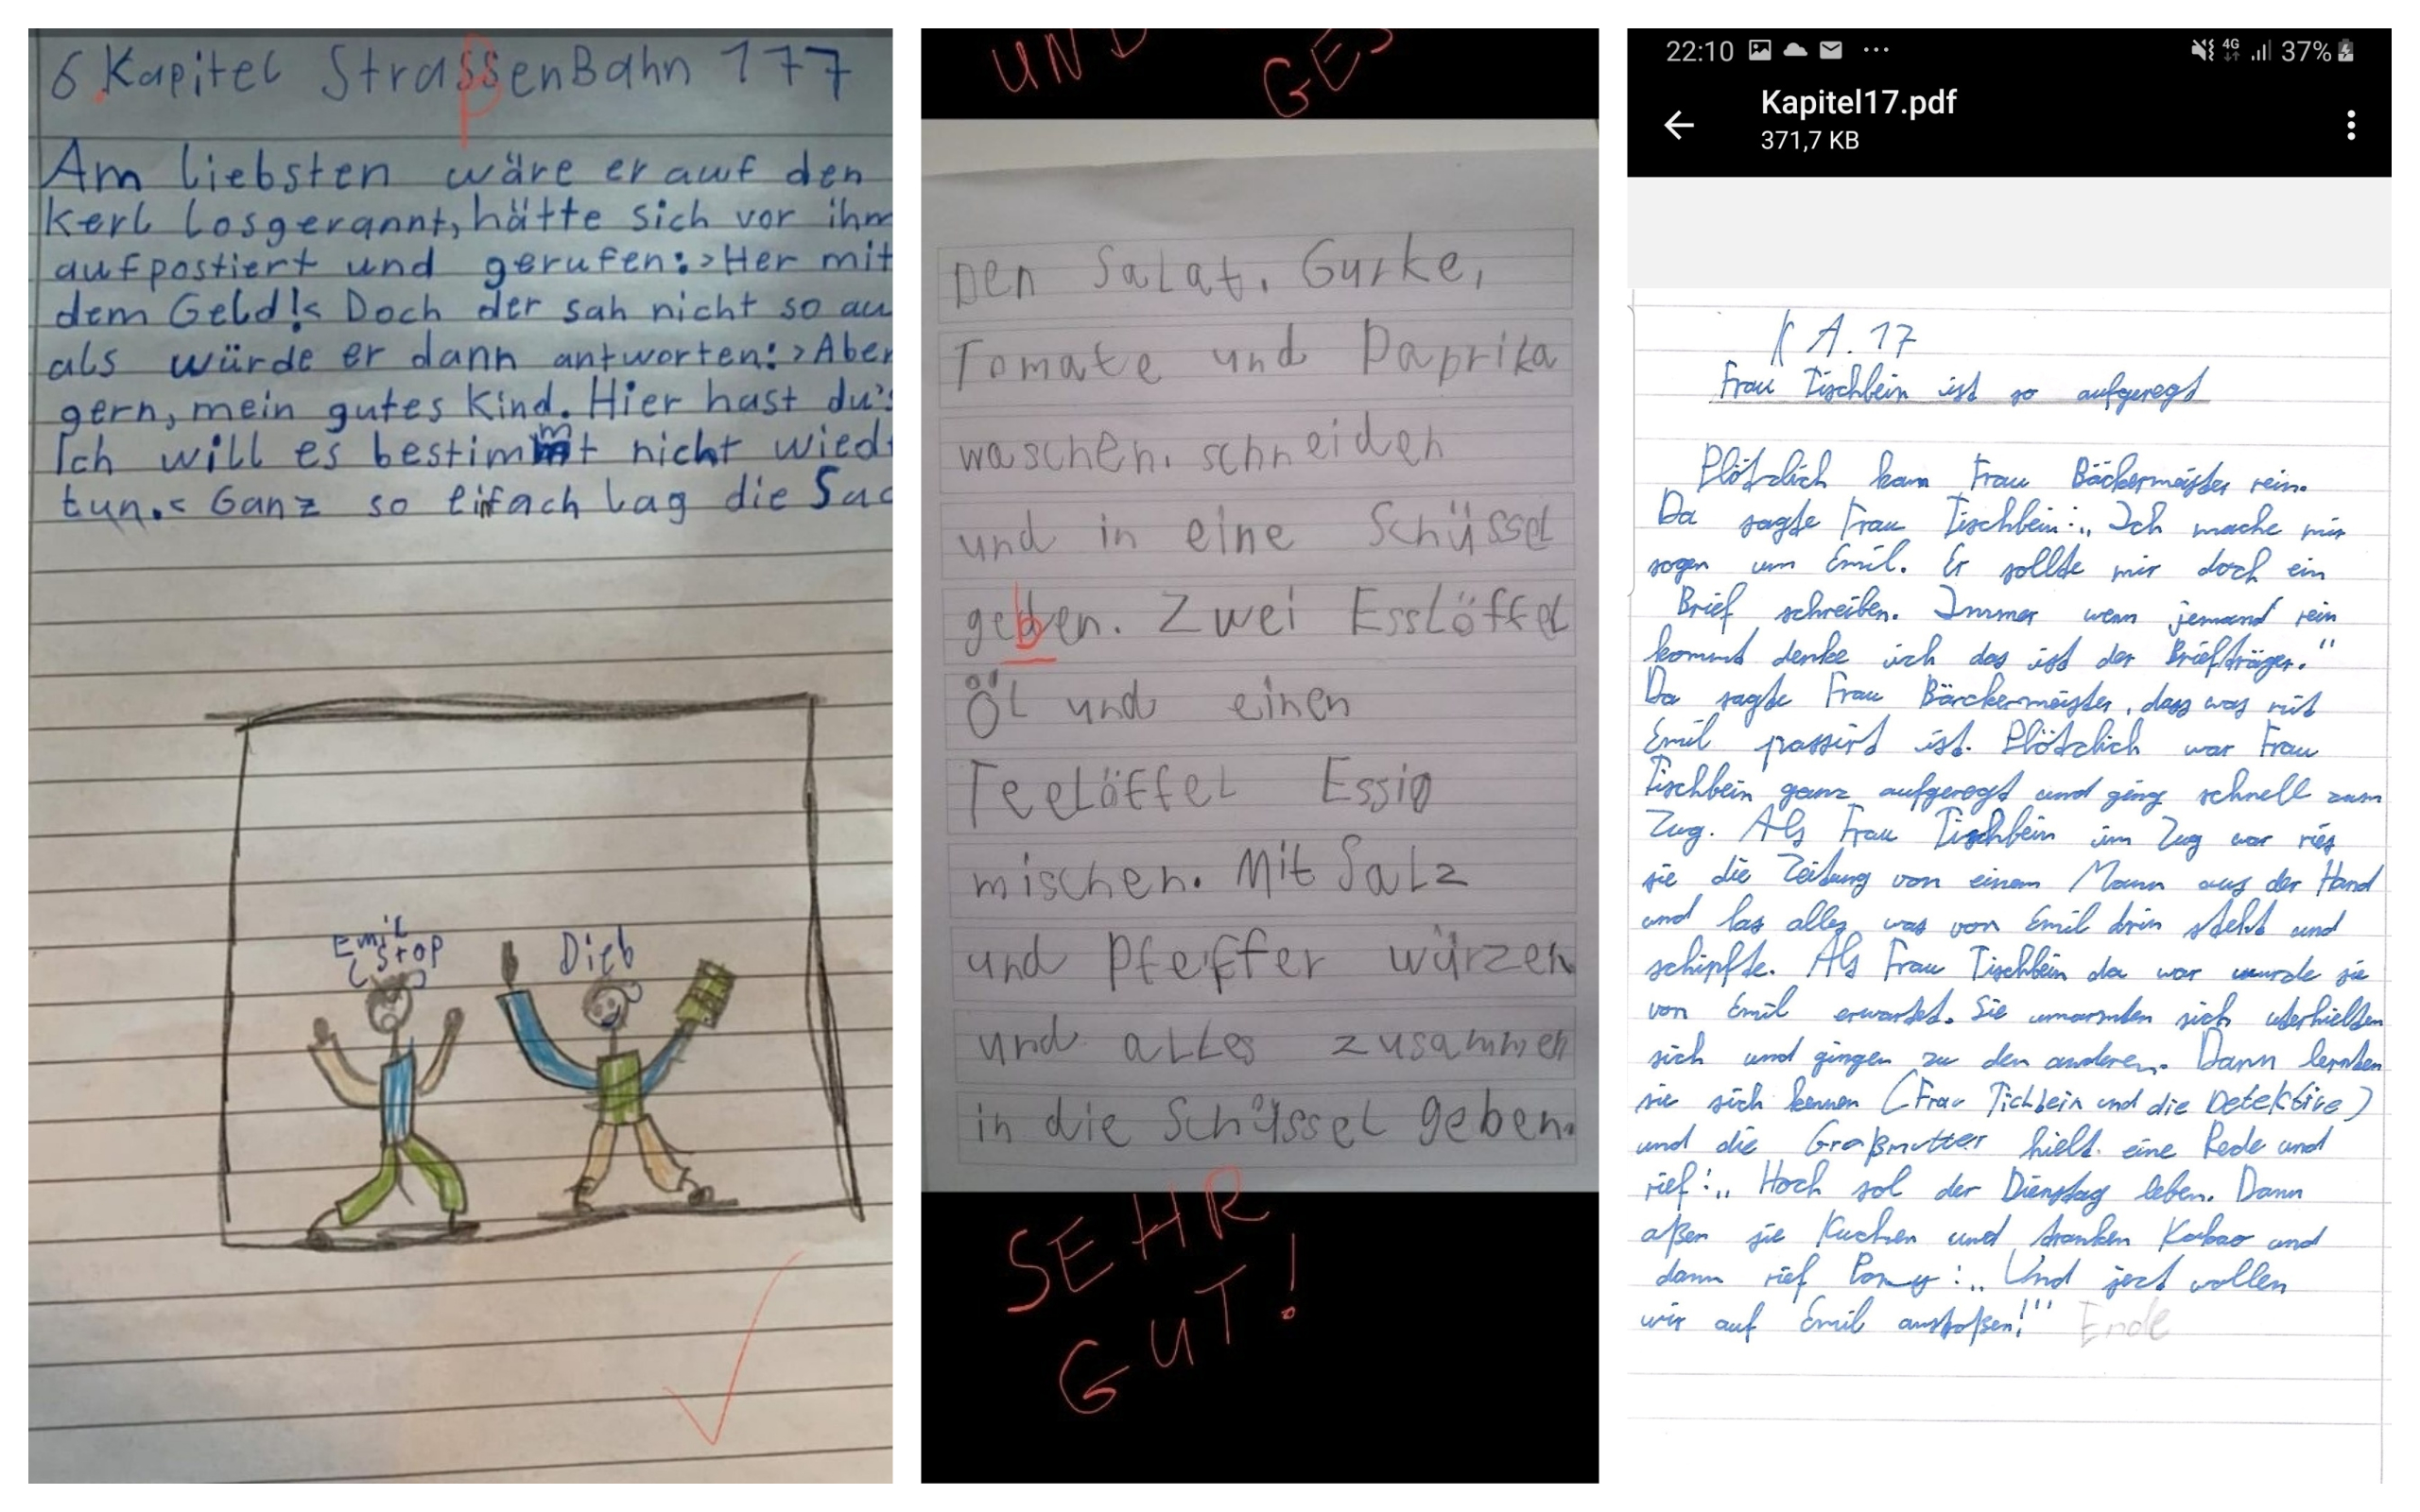 6. Kapitel StraßenBahn 177
Am liebsten wäre er auf den
Kerl losgerannt, hätte sich vor ihm
aufpostiert und gerufen: >Her mit
dem Geld!< Doch der sah nicht so au
als würde er dann antworten: >Aber
gern, mein gutes Kind. Hier hast du's
Ich will es bestimmt nicht wied
tun.< Ganz so einfach lag die Sac
Emil
Stop
Dieb
UND
GES
Den Salat, Gurke,
Tomate und Paprika
waschen, schneiden
und in eine Schüssel
geben. Zwei Esslöffel
Öl und einen
Teelöffel Essig
mischen. Mit Salz
und Pfeffer würzen
und alles zusammen
in die Schüssel geben.
SEHR
GUT!
22:10 4G 37%
Kapitel17.pdf
371,7 KB
K A. 17
Frau Tischbein ist so aufgeregt
Plötzlich kam Frau Bäckermeister rein.
Da sagte Frau Tischbein: „Ich mache mir
sogen um Emil. Er sollte mir doch ein
Brief schreiben. Immer wenn jemand rein
kommt denke ich das ist der Briefträger."
Da sagte Frau Bärckermeister, dass was mit
Emil passirt ist. Plötzlich war Frau
Tischbein ganz aufgeregt und ging schnell zum
Zug. Als Frau Tischbein im Zug war ries
sie die Zeitung von einem Mann aus der Hand
und las alles was von Emil drin steht und
schipfte. Als Frau Tischbein da war wurde sie
von Emil erwartet. Sie umarmten sich uterhielten
sich und gingen zu den anderen. Dann lernten
sie sich kennen (Frau Tichbein und die Detektive)
und die Großmutter hielt eine Rede und
rief: „Hoch sol der Dienstag leben. Dann
aßen sie Kuchen und tranken Kakao und
dann rief Pony: „Und jezt wollen
wir auf Emil anstoßen!" Ende